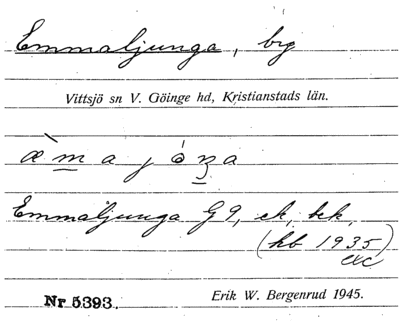 Emmaljunga, by
Vittsjö sn V. Göinge hd, Kristianstads län.
æ̀m̲ajóŋa
Emmaljunga G 9, ek, bek,
(hb 1935)
Nr 5393. Erik W. Bergenrud 1945.